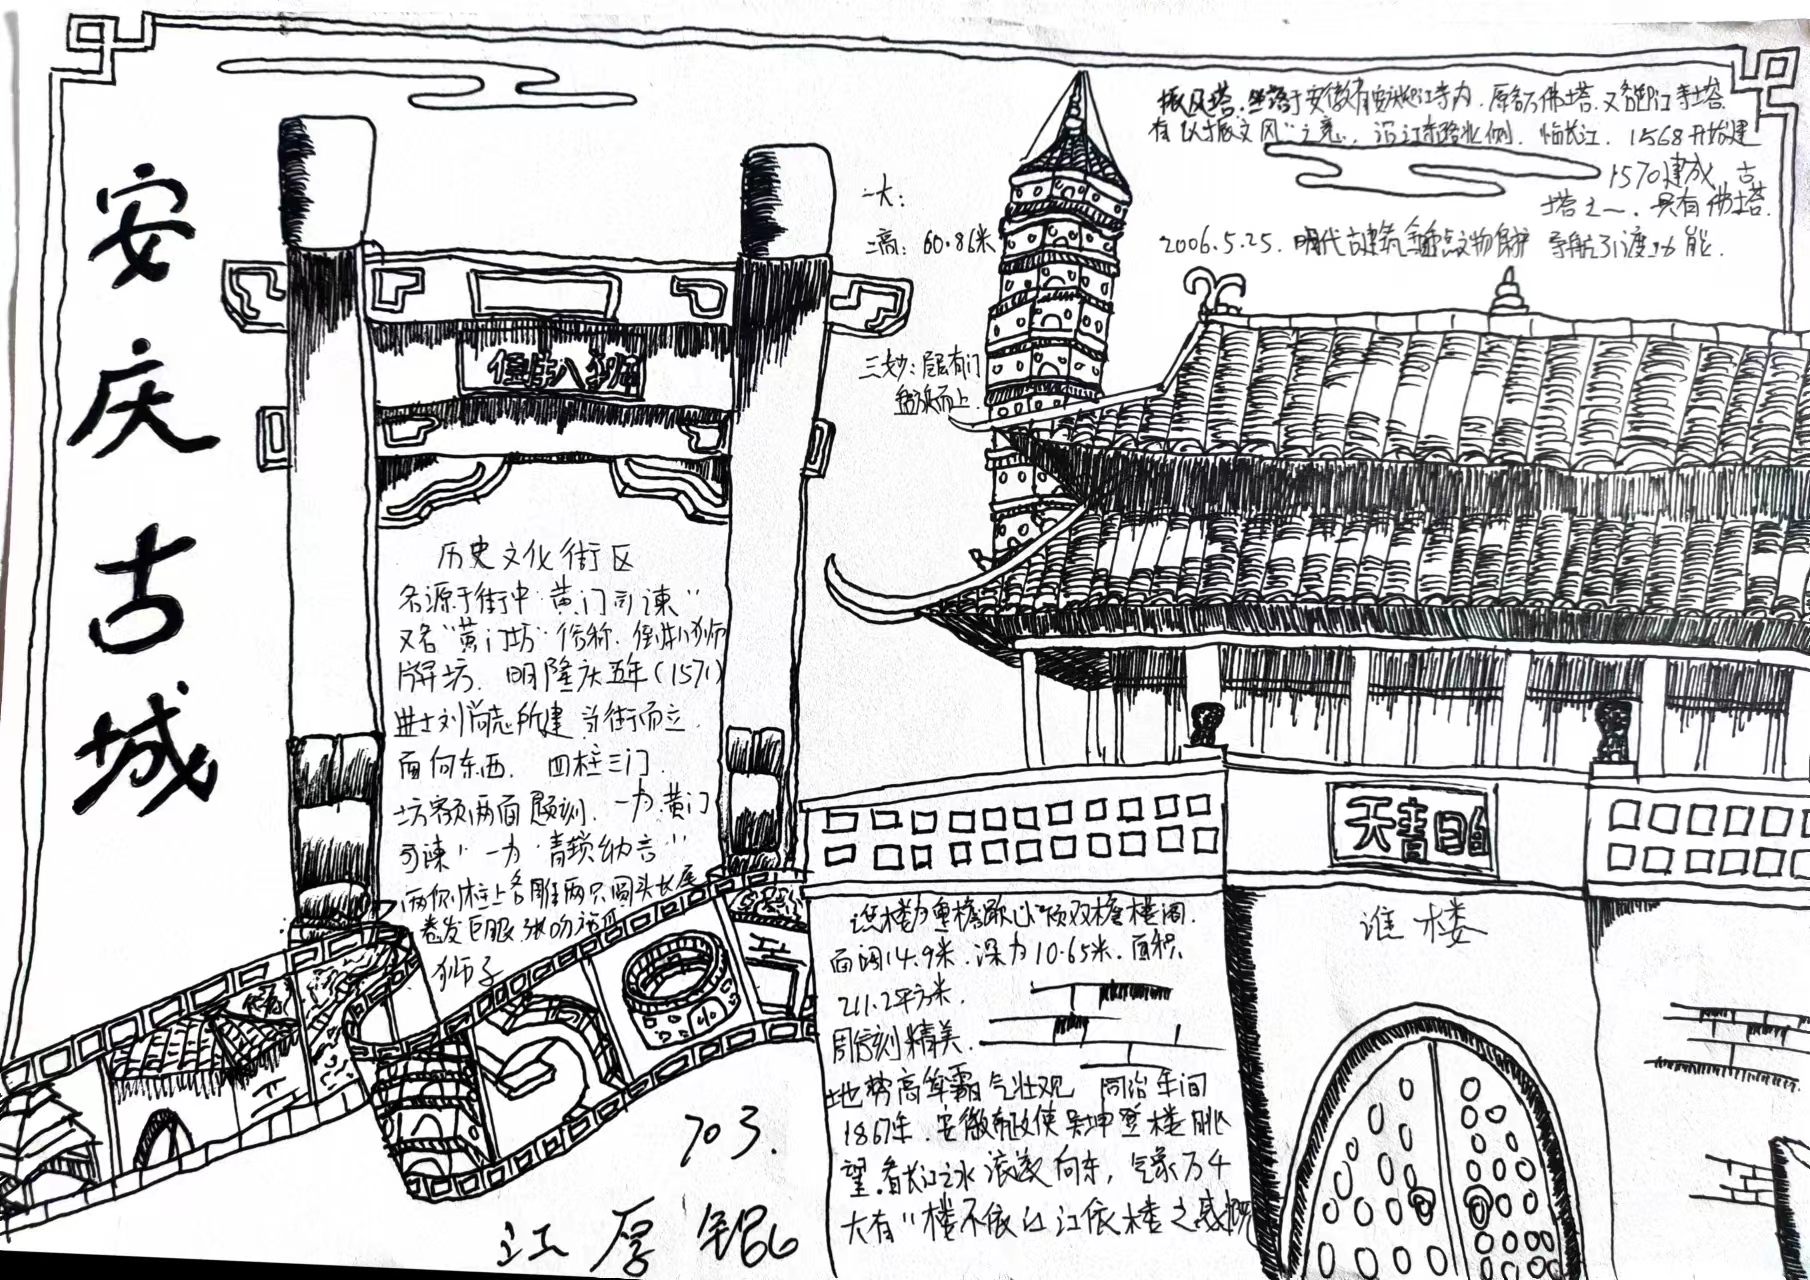 安庆古城
历史文化街区
名源于街中"黄门司谏"
又名"黄门坊"俗称.倒扒狮
牌坊.明隆庆五年(1571)
进士刘尚志所建 当街而立.
面向东西.四柱三门.
坊额两面题刻.一为黄门
司谏"一为"青锁纳言"
两侧柱上各雕两只圆头长尾
卷发巨眼张吻
狮子
倒扒狮
一大:
二高:60.86米
三妙:层层有门
盘旋而上.
振风塔.坐落于安徽省安庆迎江寺内.原名万佛塔.又名迎江寺塔.
有"以振文风"之意.沿江东路北侧.临长江.1568开始建
1570建成.古
塔之一.具有佛塔.
2006.5.25.明代古建筑全国重点文物保护 导航引渡功能.
谯楼
谯楼为重檐歇山顶双檐楼阁.
面阔14.9米.深为10.65米.面积
211.2平方米.
周信刻精美.
地势高车霸气壮观 同治年间
1867年.安徽布政使吴坤登楼眺
望.看长江之水滚滚向东,气象万千
大有"楼不依江江依楼之感慨
703.
江厚锟